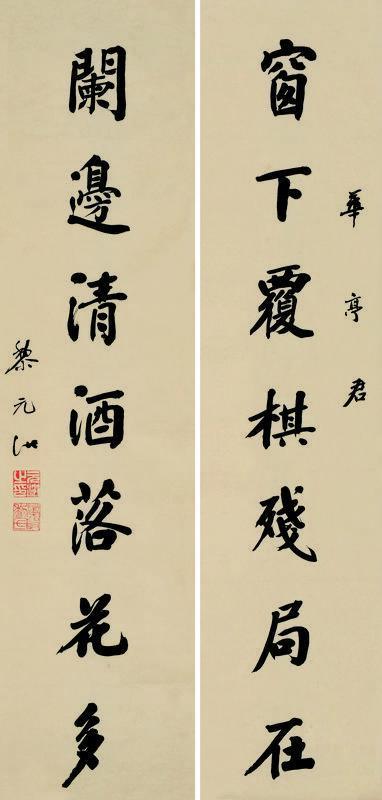 華亭君
窗下覆棋殘局在
闌邊清酒落花多
黎元洪